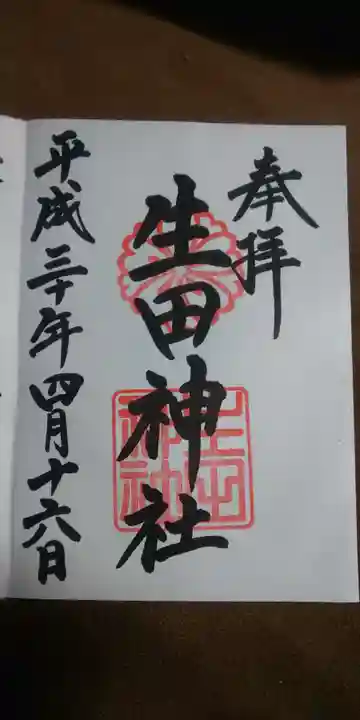 奉拝
生田神社
平成三十年四月十六日